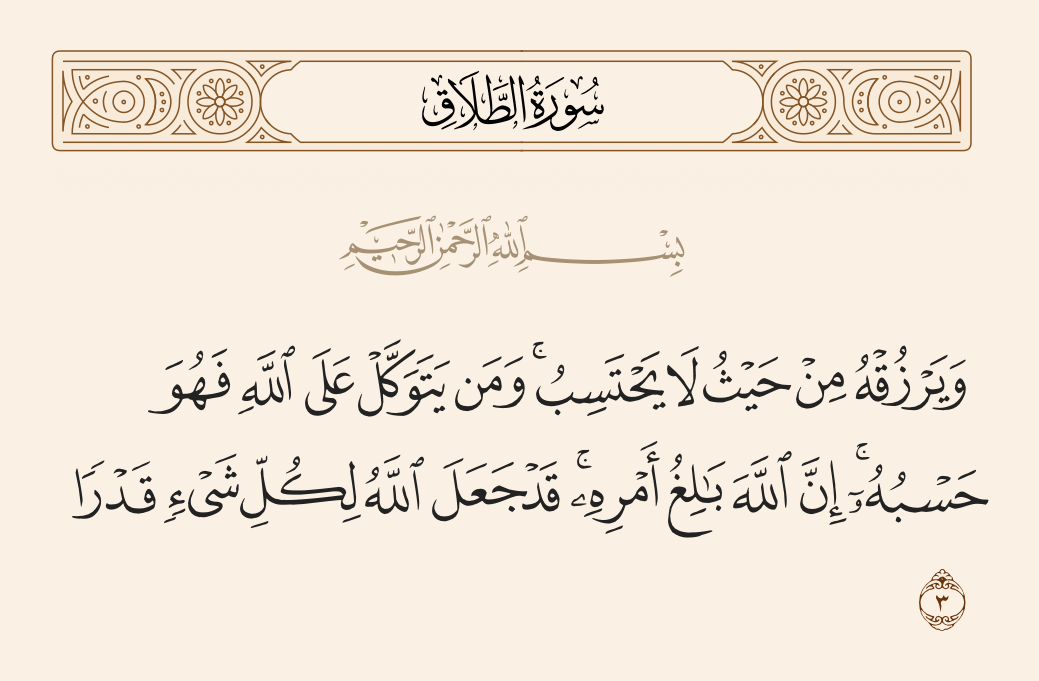 سُورَةُ الطَّلَاقِ
بِسْمِ ٱللَّهِ ٱلرَّحْمَٰنِ ٱلرَّحِيمِ
وَيَرْزُقْهُ مِنْ حَيْثُ لَا يَحْتَسِبُ ۚ وَمَن يَتَوَكَّلْ عَلَى ٱللَّهِ فَهُوَ
حَسْبُهُۥٓ ۚ إِنَّ ٱللَّهَ بَـٰلِغُ أَمْرِهِۦ ۚ قَدْ جَعَلَ ٱللَّهُ لِكُلِّ شَىْءٍ قَدْرًا
٣